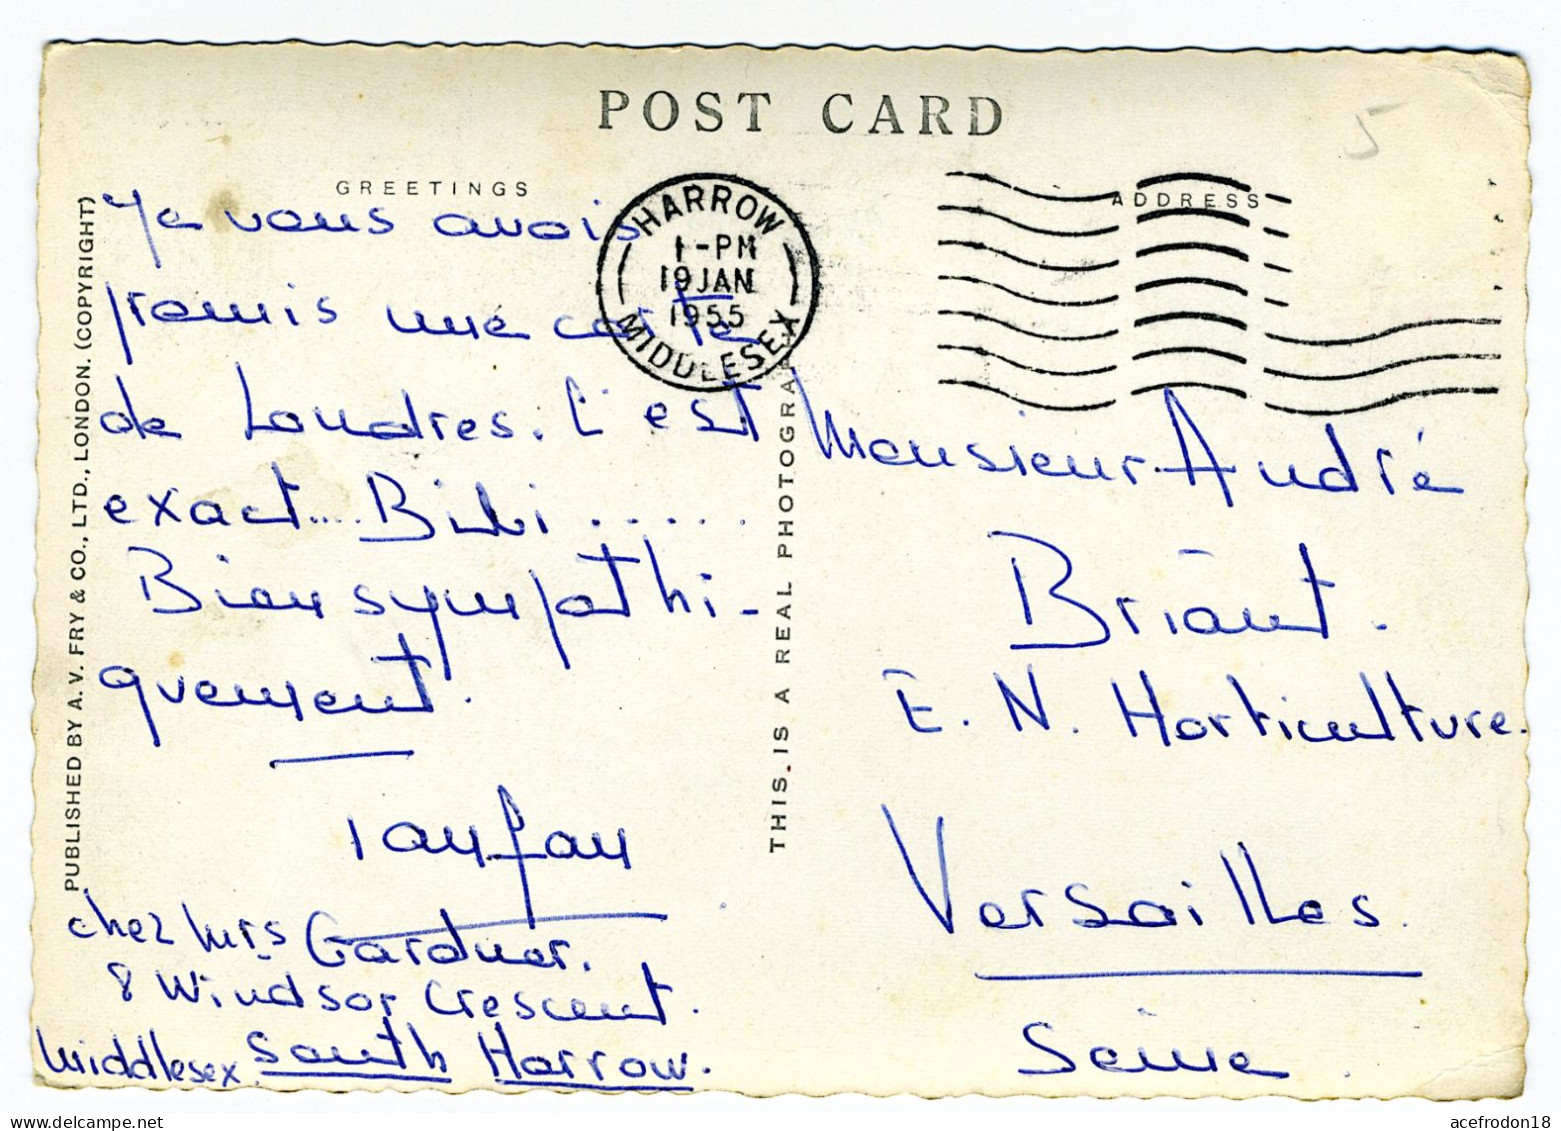 POST CARD
GREETINGS
ADDRESS
5
HARROW
1-PM
19 JAN
1955
MIDDLESEX
Je vous avois
promis une carte
de Londres. C'est
exact.... Bibi ......
Bien sympathi-
quement.
chez Mrs Gardner.
8 Windsor Crescent.
Middlesex. South Harrow.
Monsieur André
Briant.
E. N. Horticulture.
Versailles.
Seine.
PUBLISHED BY A. V. FRY & CO., LTD., LONDON. (COPYRIGHT)
THIS IS A REAL PHOTOGRA
acefrodon18